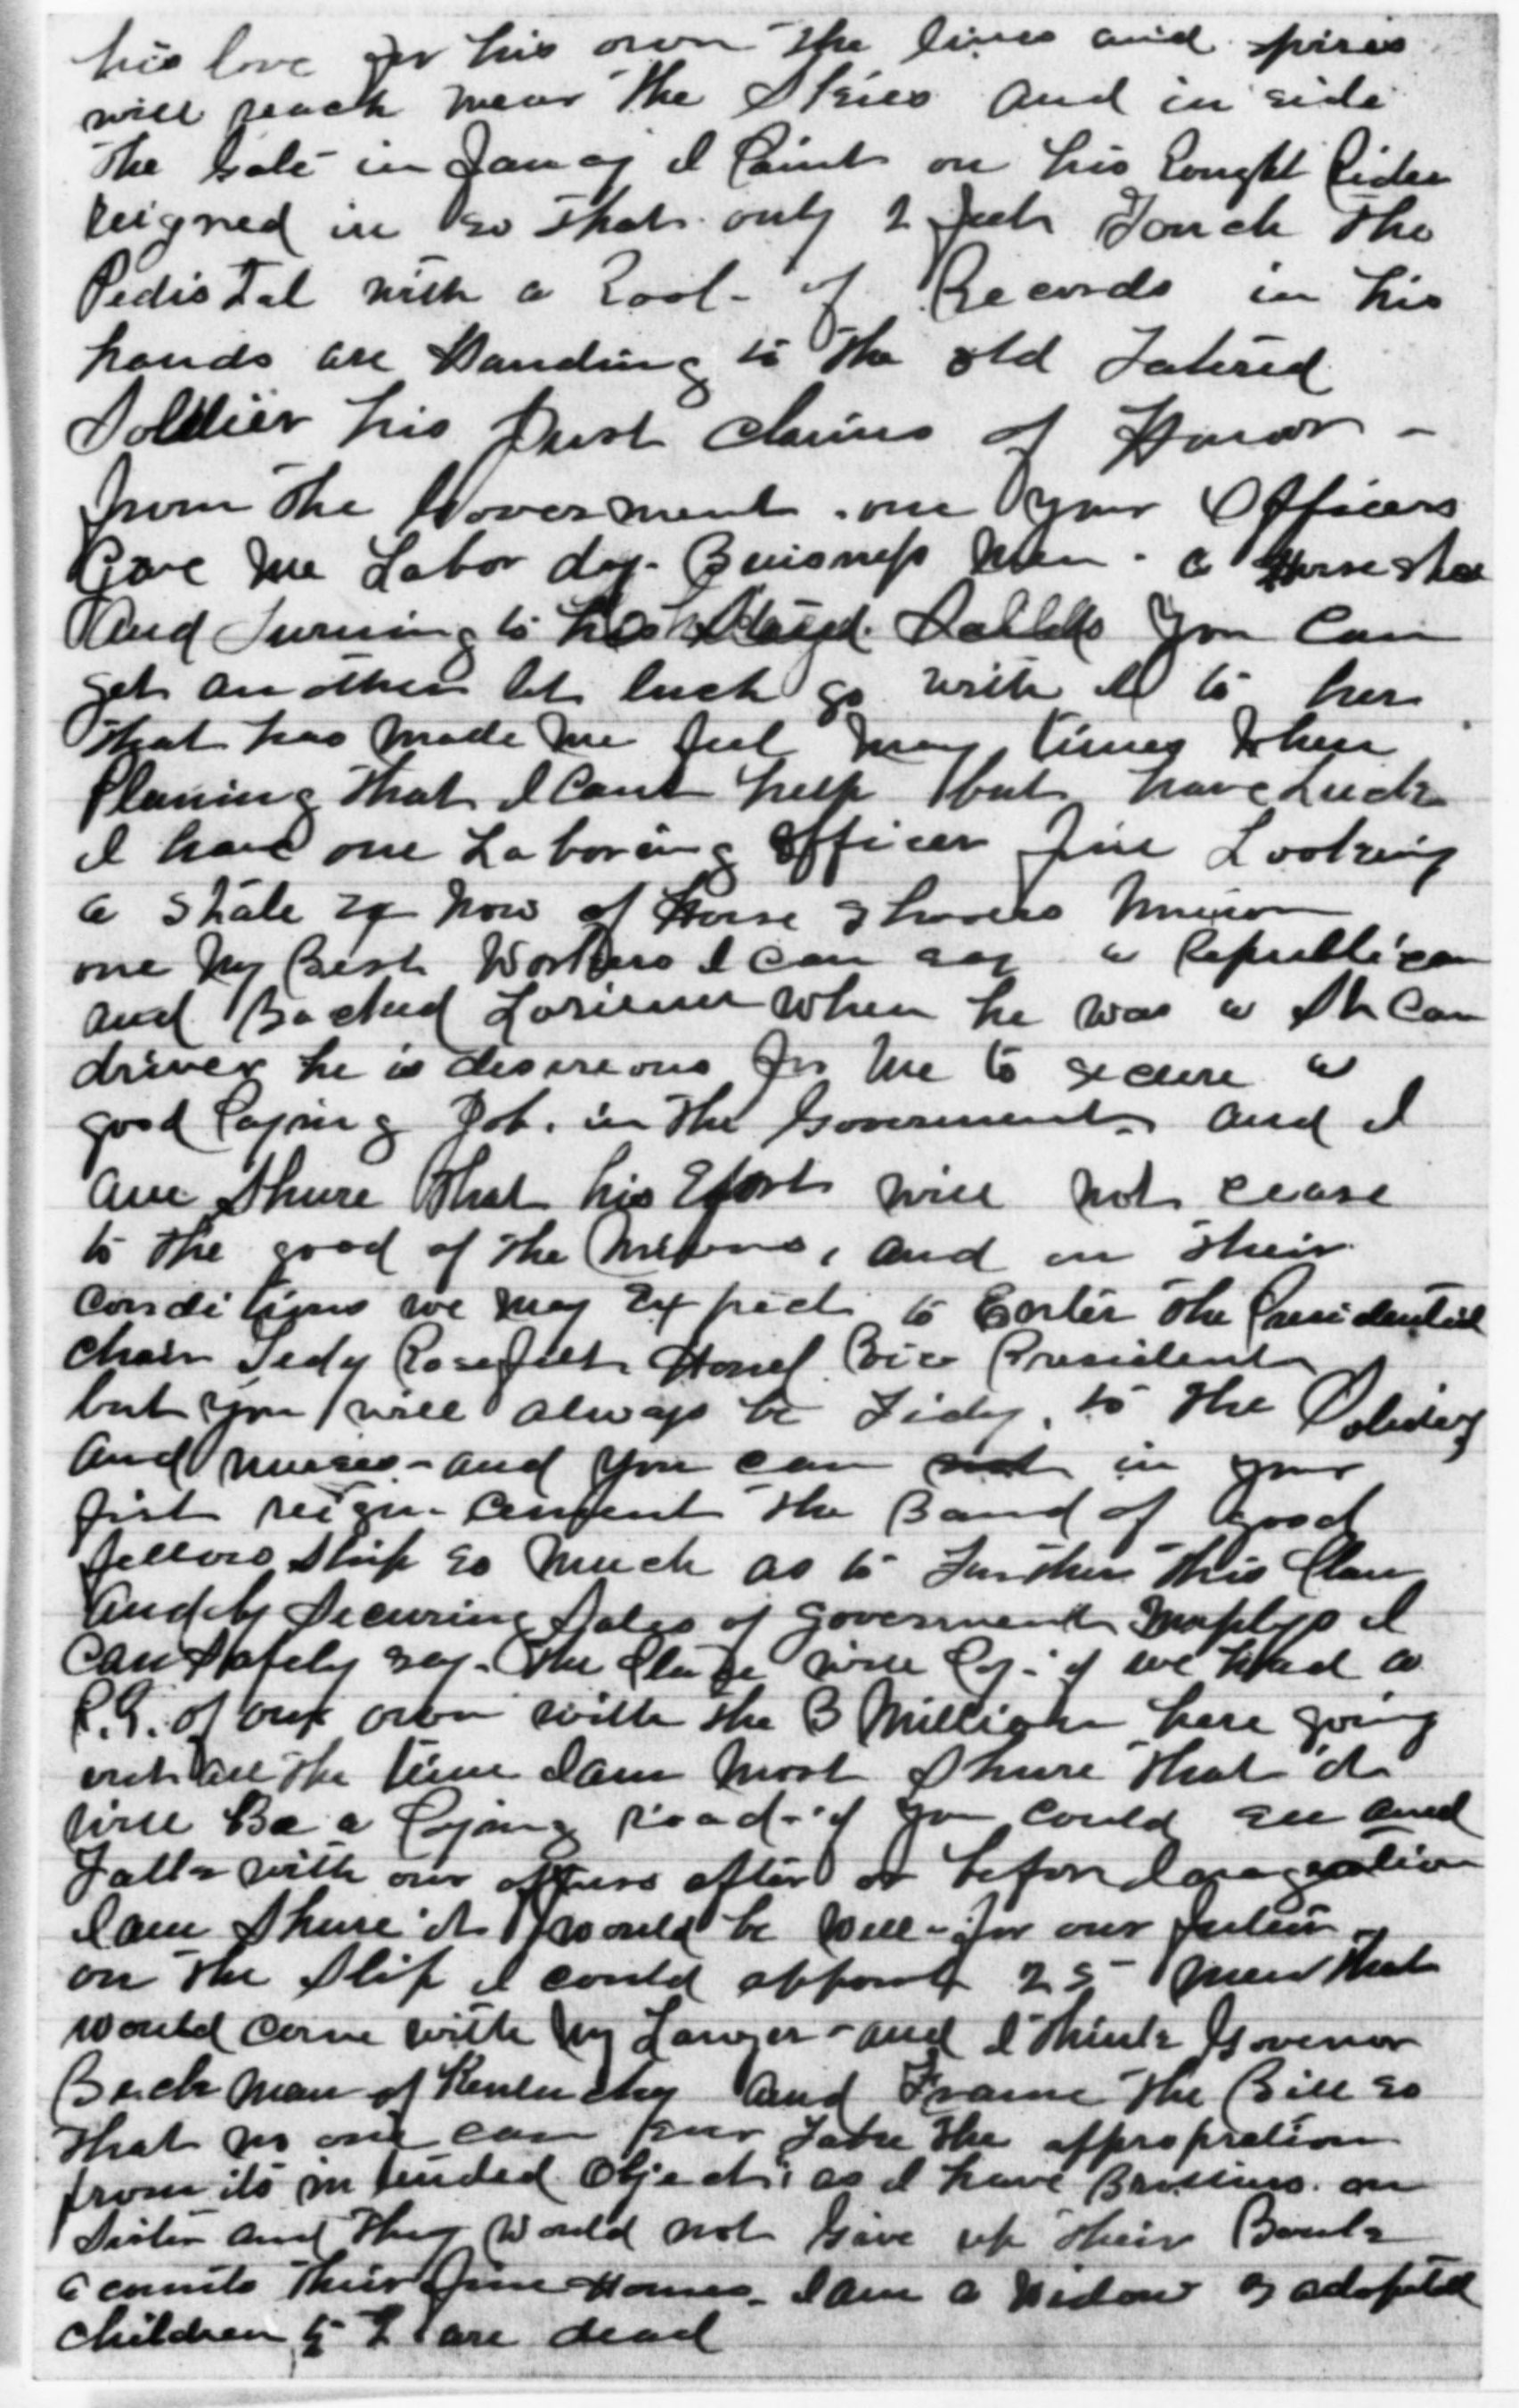 his love for his own the lines and spires
will reach near the Skies and in side
the Gate in I Paint on his Rought Rider
reigned in so that only 2 feet Touch the
Pedistal with a Rool - of Records in his
hands are Handing to the old Tatered
Soldier his Just claims of Honor -
from the Goverment . one your Officers
Gave me Labor day. Buisness Men - a Horse shoe
And Turning to his said you can
get another let luck go with it to her
that has made me feel many times when
Planing that I Cant help but have Luck
I have one Laboring officer fine Looking
a State now of Horse Shoers Union
one my Best Workers I can say a Republican
and Backed Lorimer when he was a St Car
driver he is desireous for me to secure a
good Paying Job. in the Goverment. and I
am Shure that his Efforts will not cease
to the good of the Unions, and on their
conditions we may Expect to Enter the Presidential
chair Tedy Rosefelt Honel Vice President
but you will always be Tedy, to the Soldiers
and nurses - and you can not in your
first reign - cement the Band of good
fellowship so much as to Further this Plan
and by Securing Sales of goverment I
can Safely say - the Place will Pay - if we had a
P.G. of our own with the 3 Million here going
out all the time I am most Shure that it
will Be a Paying road - if you could see and
Talk with our officers after or before
I am Shure it would be well - for our future
on the Slip I could appoint 25 men that
would come with my Lawyer - and I think Govenor
Beckman of Kentucky and Frame the Bill so
that no one can ever Take the appropration
from its in tended Object; as I have Brothers. an
Sister and they would not Give up their Bank
acounts their fine Homes. I am a Widow adopted
children 2 are dead